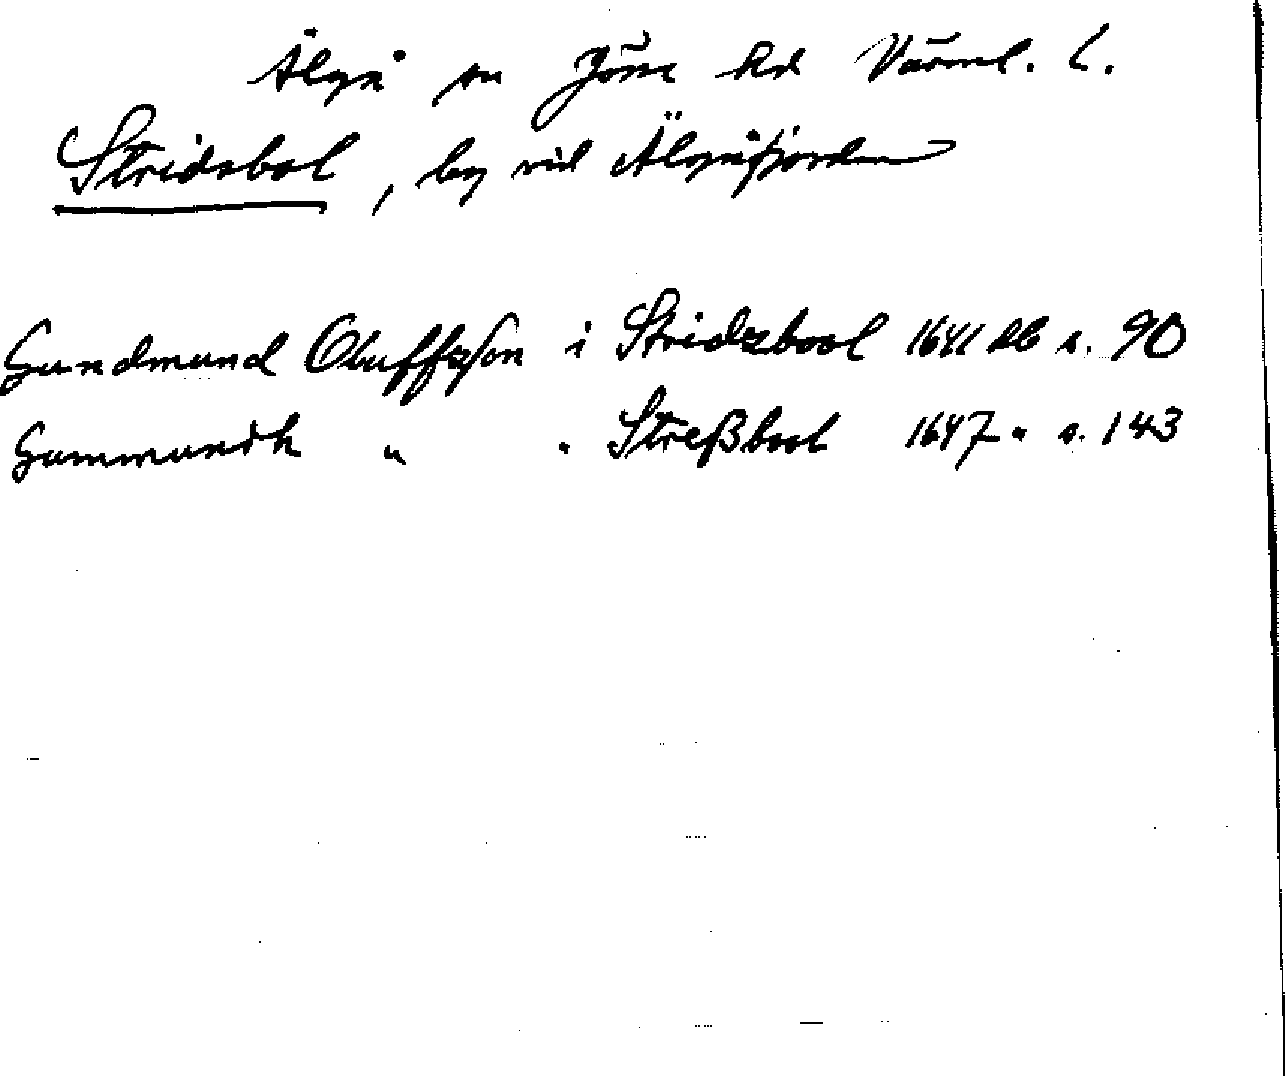 Älgå sn Jösse hd Värml. l.
Stridsbol, by vid Älgåfjorden
Gundmund Oluffzson i Stridzbool 1641 db s. 90
Gummundh " " Streßbool 1647 " s. 143